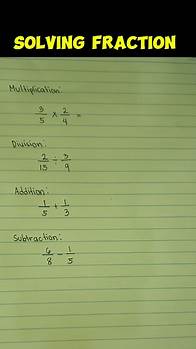 SOLVING FRACTION
Multiplication:
3/5 x 2/4 =
Division:
2/13 ÷ 3/9
Addition:
1/5 + 1/3
Subtraction:
6/8 - 1/5